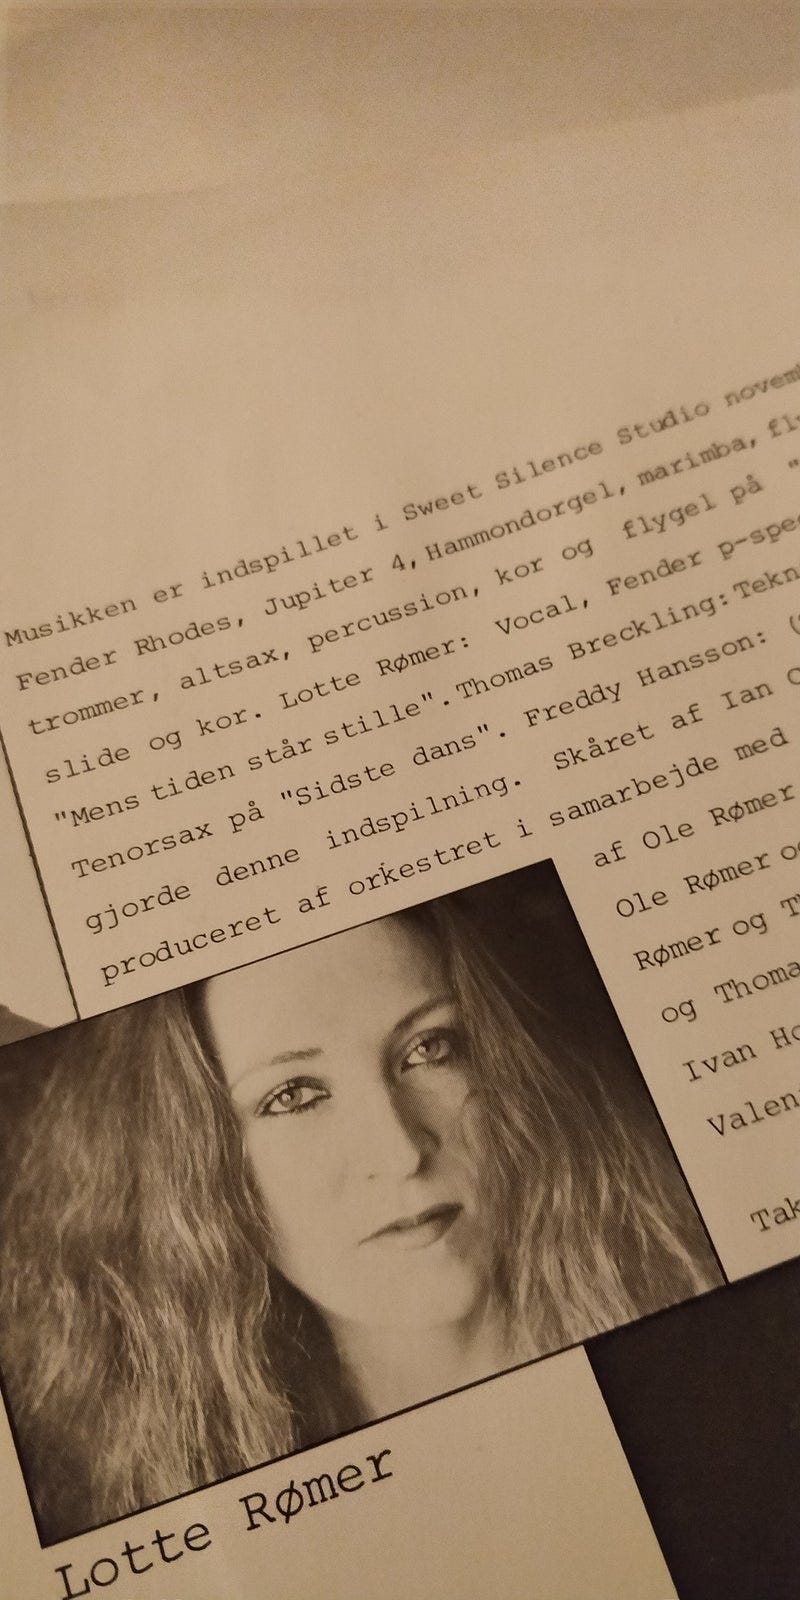 Musikken er indspillet i Sweet Silence Studio
Fender Rhodes, Jupiter 4, Hammondorgel, marimba,
trommer, altsax, percussion, kor og flygel på "
slide og kor. Lotte Rømer: Vocal, Fender
"Mens tiden står stille". Thomas Breckling:
Tenorsax på "Sidste dans". Freddy Hansson: (
gjorde denne indspilning. Skåret af Ian
produceret af orkestret i samarbejde med
af Ole Rømer
Ole Rømer
Rømer og
og
Ivan
Lotte Rømer